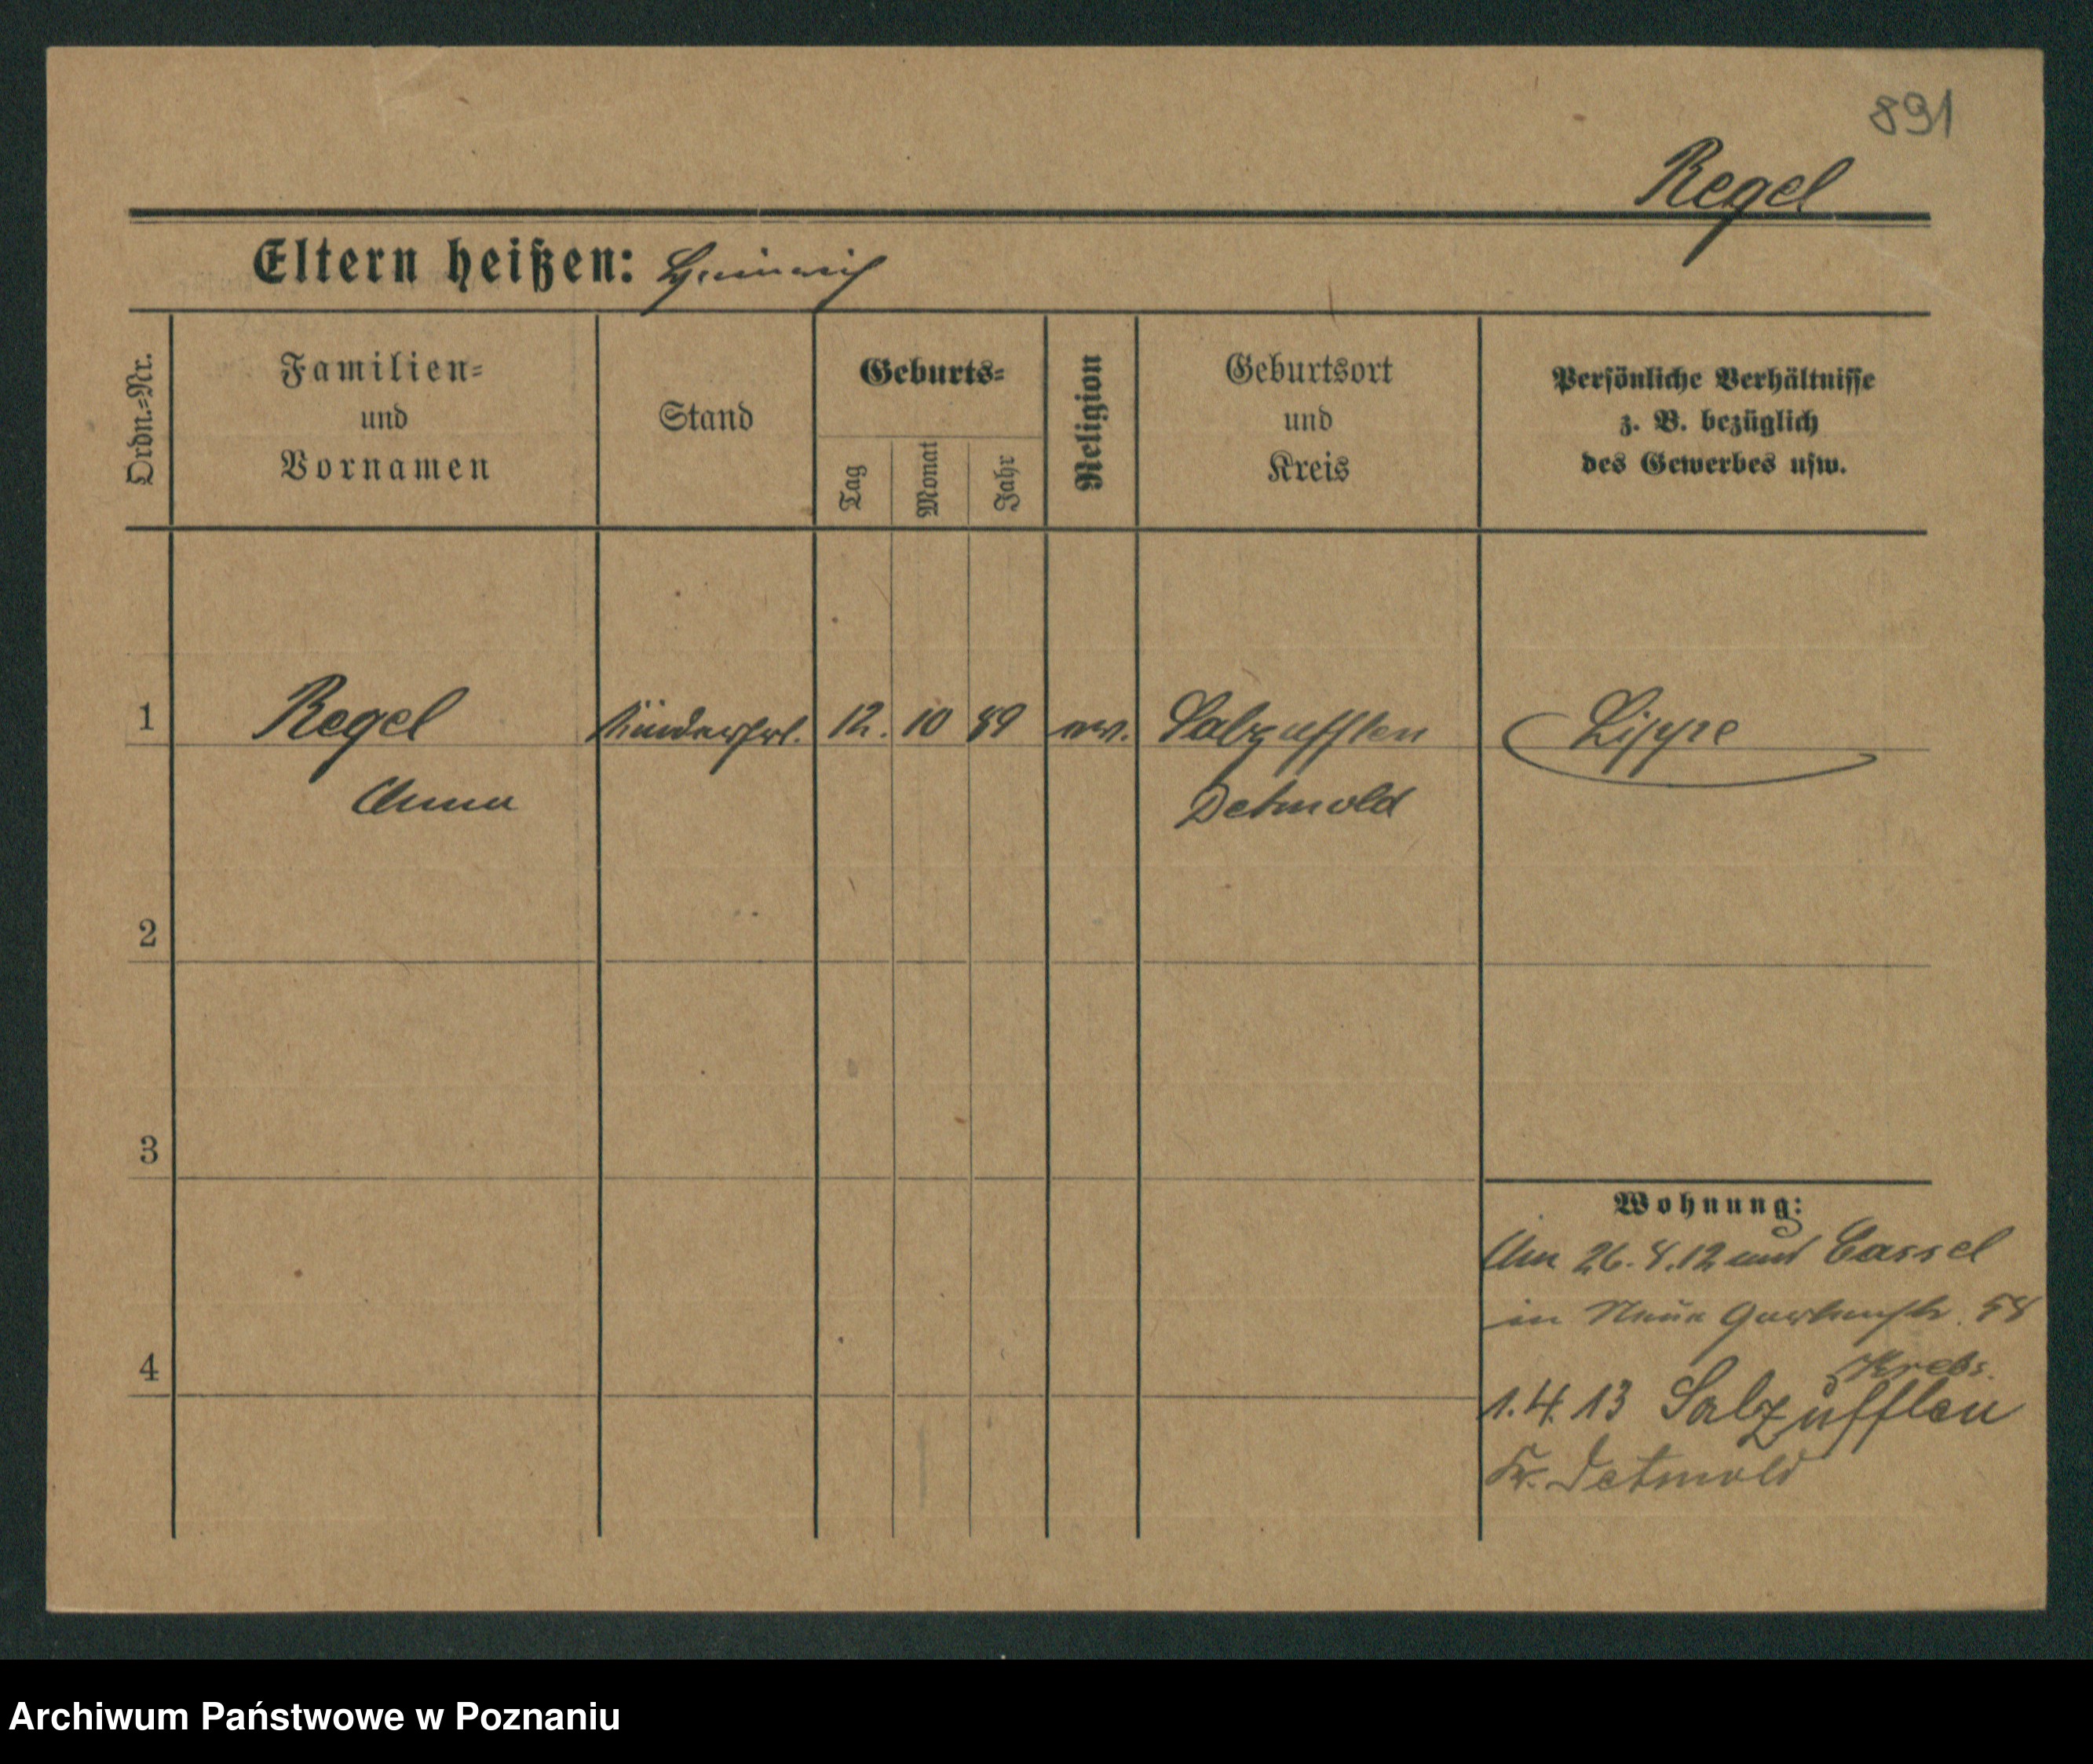 891
Regel
Eltern heißen: Heinrich
Ordn.-Nr.
Familien-
und
Vornamen
Stand
Geburts-
Tag
Monat
Jahr
Religion
Geburtsort
und
Kreis
Persönliche Verhältnisse
z. B. bezüglich
des Gewerbes usw.
1
Regel
Anna
Kinderfrl.
12. 10 89
ev.
Salzufflen
Detmold
Lippe
2
3
4
Wohnung:
Am 26. 4. 12 aus Cassel
in Neue Gartenstr.
Krebs.
1. 4. 13 Salzufflen
Kr. Detmold
Archiwum Państwowe w Poznaniu